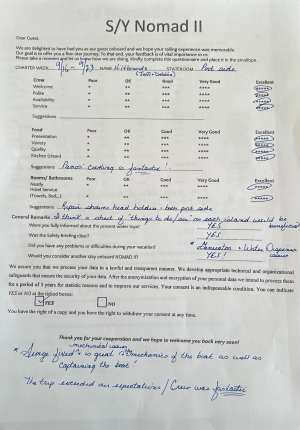 S/Y Nomad II
Dear Guest,
We are delighted to have had you as our guest onboard and we hope your sailing experience was memorable.
Our goal is to offer you a five-star journey. To that end, your feedback is of vital importance to us.
Please take a moment and let us know how we are doing. Kindly complete this questionnaire and place it in the envelope.
CHARTER WEEK 9/16 - 9/23 NAME STATEROOM Port side
Crew Poor OK Good Very Good Excellent
Welcome * ** *** **** *****
Polite * ** *** **** *****
Availability * ** *** **** *****
Service * ** *** **** *****
Suggestions
Food Poor OK Good Very Good Excellent
Presentation * ** *** **** *****
Variety * ** *** **** *****
Quality * ** *** **** *****
Kitchen (clean) * ** *** **** *****
Suggestions cooking is fantastic
Rooms/ Bathrooms Poor OK Good Very Good Excellent
Ready * ** *** **** *****
Hotel Service * ** *** **** *****
(Towels, Bed,..)
Suggestions Repair shower head holder - both port side
General Remarks I think a sheet of "things to do/see" on each island would be beneficial
Were you fully informed about the present water toys? YES
Was the Safety Briefing clear? YES
Did you have any problems or difficulties during your vacation? * Generator + Water
Would you consider another stay onboard NOMAD II? YES!
We assure you that we process your data in a lawful and transparent manner. We develop appropriate technical and organizational
safeguards that ensure the security of your data. After the anonymization and encryption of your personal data we intend to process them
for a period of 5 years for statistic reasons and to improve our services. Your consent is an indispensable condition. You can indicate
YES or NO at the relevant boxes:
YES NO
You have the right of a copy and you have the right to withdraw your consent at any time.
Thank you for your cooperation and we hope to welcome you back very soon!
mechanical issues
* fixed is great @ mechanics of the boat as well as
captaining the boat!
The trip exceeded our expectations / Crew was fantastic